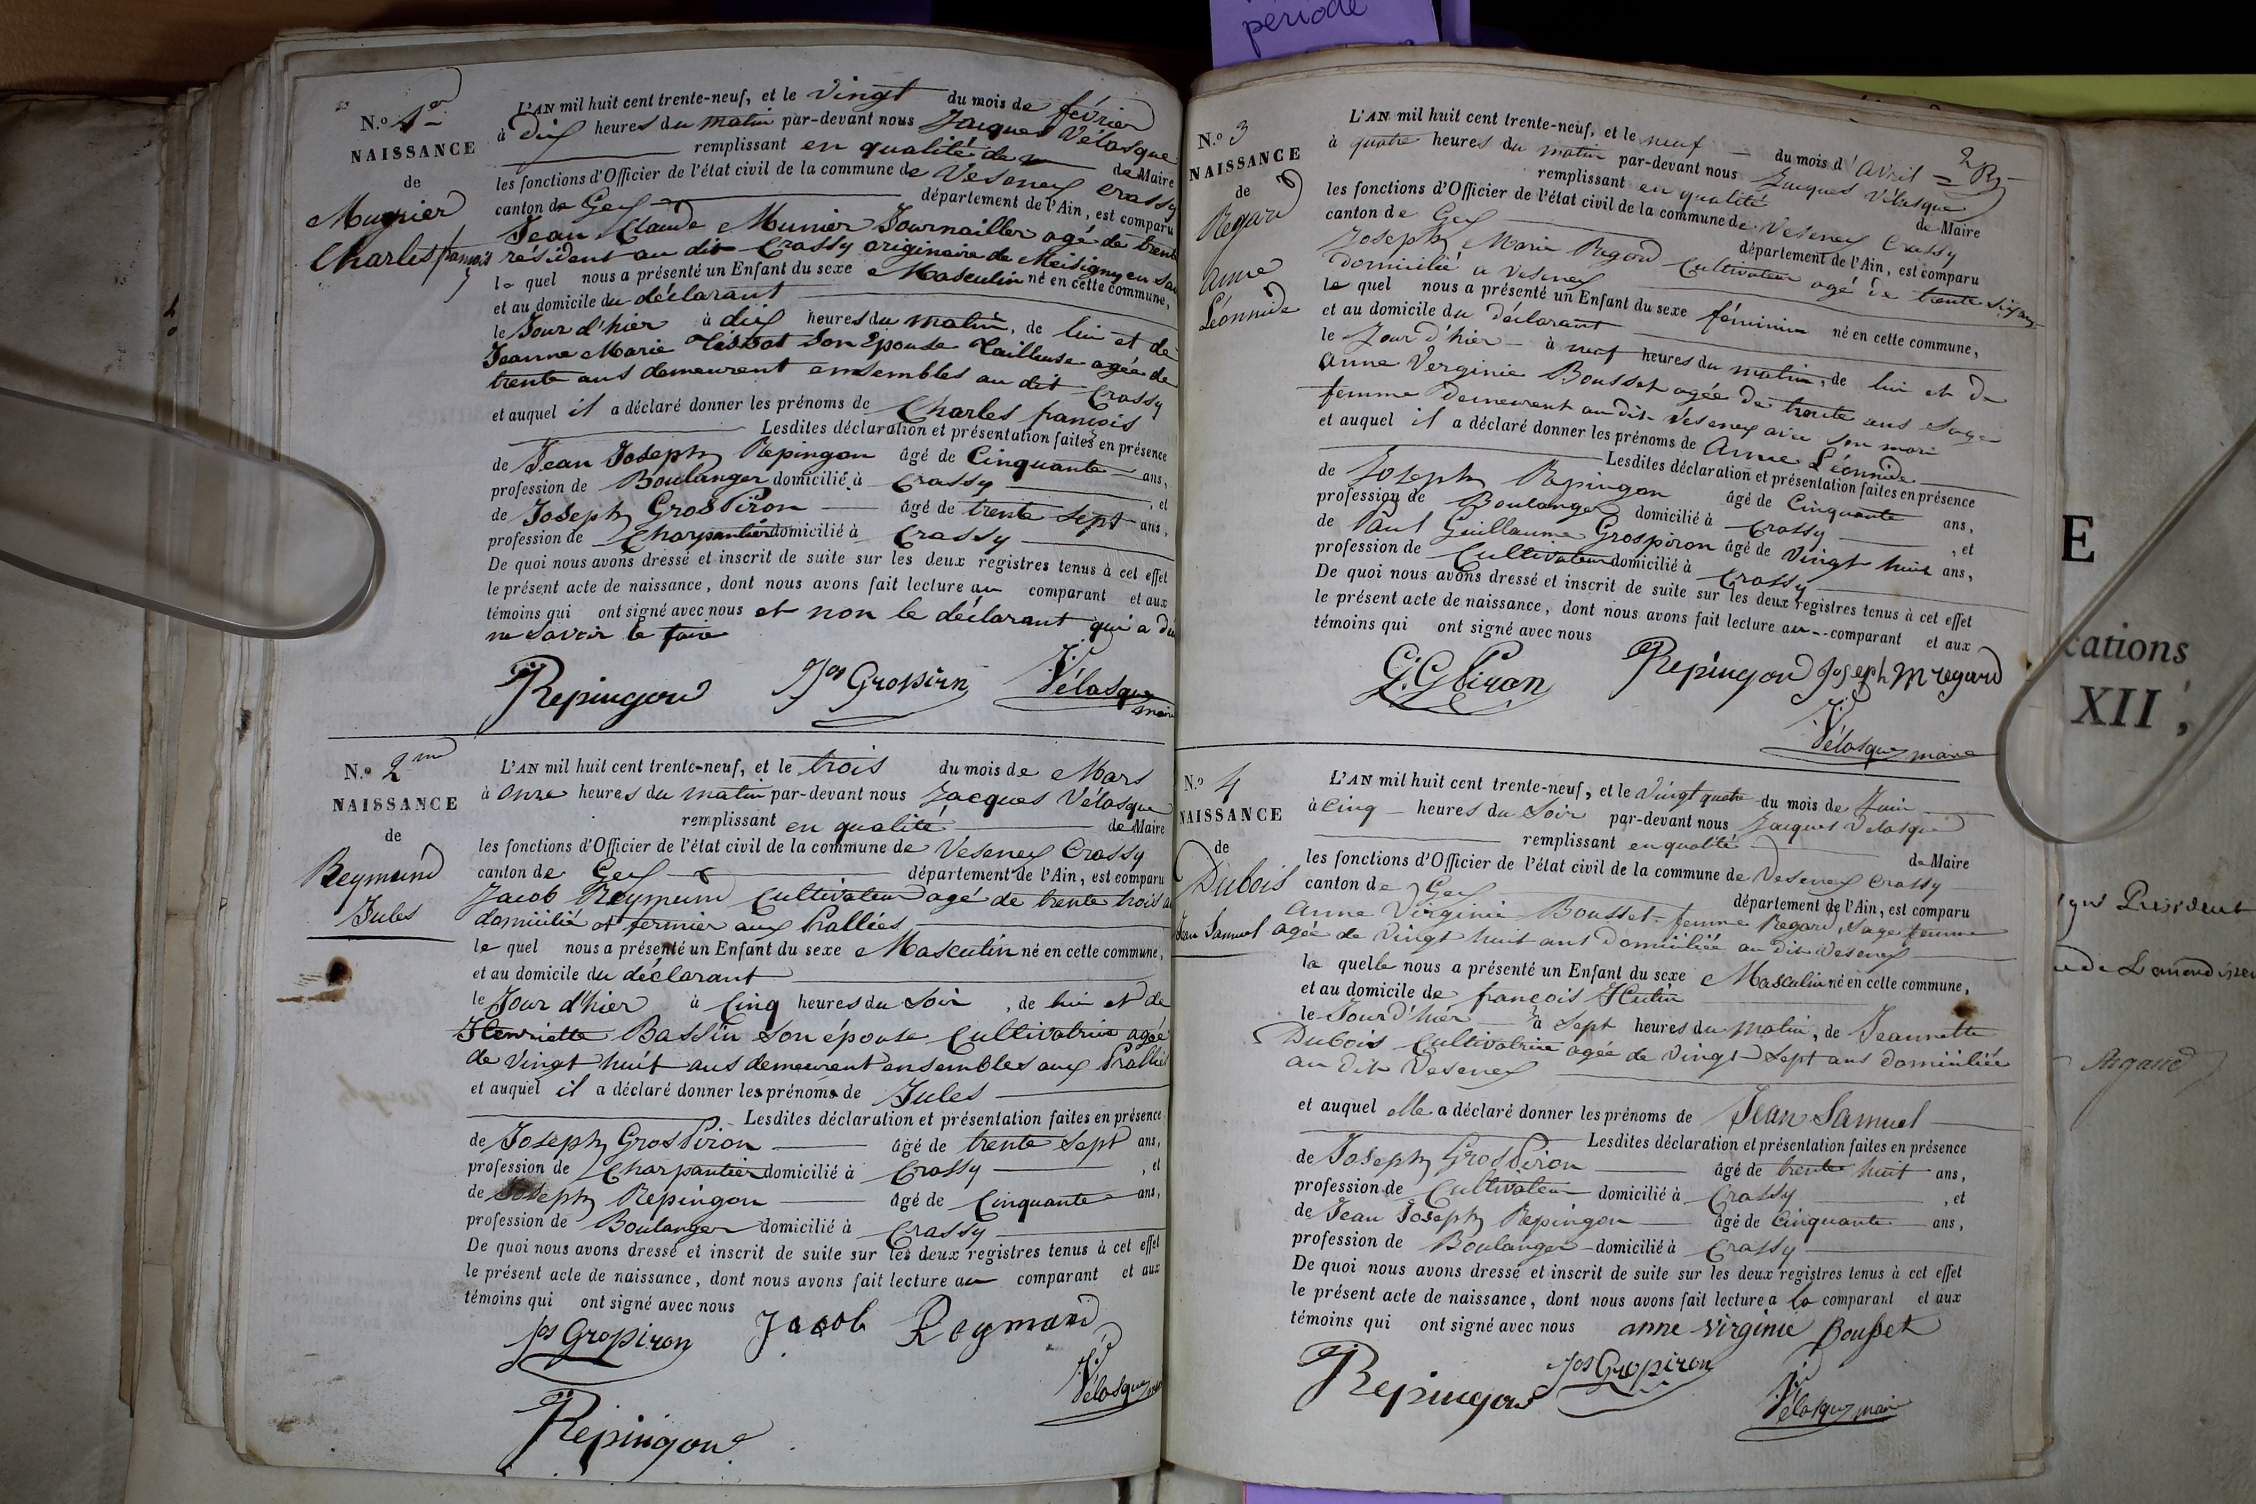 période
N.o 1er
NAISSANCE
de
Munier
Charles françois
L'AN mil huit cent trente-neuf, et le vingt du mois de février
à dix heures du matin par-devant nous Jacques Vélasque
remplissant en qualité de de Maire
les fonctions d'Officier de l'état civil de la commune de Vesenex Crassy
canton de Gex département de l'Ain, est comparu
Jean Claude Munier Journailler agé de trente
résident au dit Crassy originaire de Meisigny en
le quel nous a présenté un Enfant du sexe Masculin né en cette commune,
et au domicile du déclarant
le Jour d'hier à dix heures du matin, de lui et de
Jeanne Marie son Epouse Tailleuse agée de
trente ans demeurent ensembles au dit Crassy
et auquel il a déclaré donner les prénoms de Charles françois
Lesdites déclaration et présentation faites en présence
de Jean Joseph Repingon âgé de Cinquante ans,
profession de Boulanger domicilié à Crassy , et
de Joseph GrosPiron âgé de trente sept ans,
profession de Charpantier domicilié à Crassy
De quoi nous avons dressé et inscrit de suite sur les deux registres tenus à cet effet
le présent acte de naissance, dont nous avons fait lecture au comparant et aux
témoins qui ont signé avec nous et non le déclarant qui a du
ne savoir le faire
Repingon Jos Gropirn Vélasque maire
N.o 2me
NAISSANCE
de
Reymund
Jules
L'AN mil huit cent trente-neuf, et le trois du mois de Mars
à onze heures du matin par-devant nous Jacques Vélasque
remplissant en qualité de Maire
les fonctions d'Officier de l'état civil de la commune de Vesenex Crassy
canton de Gex département de l'Ain, est comparu
Jacob Reymund Cultivateur agé de trente trois
domicilié et fermier aux Pralliés
le quel nous a présenté un Enfant du sexe Masculin né en cette commune,
et au domicile du déclarant
le Jour d'hier à Cinq heures du soir , de lui et de
Henriette Bassin son épouse Cultivatrice agée
de vingt huit ans demeurent ensembles aux Pralliés
et auquel il a déclaré donner les prénoms de Jules
Lesdites déclaration et présentation faites en présence
de Joseph GrosPiron âgé de trente sept ans,
profession de Charpantier domicilié à Crassy , et
de Joseph Repingon âgé de Cinquante ans,
profession de Boulanger domicilié à Crassy
De quoi nous avons dressé et inscrit de suite sur les deux registres tenus à cet effet
le présent acte de naissance, dont nous avons fait lecture au comparant et aux
témoins qui ont signé avec nous
Jos Gropiron Jacob Reymond
Vélasque
Repingon
N.o 3
NAISSANCE
de
Regard
Anne
Léonnide
L'AN mil huit cent trente-neuf, et le neuf du mois d'Avril
à quatre heures du matin par-devant nous Jacques Vélasque
remplissant en qualité de Maire
les fonctions d'Officier de l'état civil de la commune de Vesenex Crassy
canton de Gex département de l'Ain, est comparu
Joseph Marie Regard Cultivateur agé de trente six ans
domicilié a Vesenex
le quel nous a présenté un Enfant du sexe féminin né en cette commune,
et au domicile du déclarant
le Jour d'hier à neuf heures du matin, de lui et de
Anne Verginie Bousset agée de trente ans Sage
femme demeurent au dit Vesenex avec son mari
et auquel il a déclaré donner les prénoms de Anne Léonnide
Lesdites déclaration et présentation faites en présence
de Joseph Repingon âgé de Cinquante ans,
profession de Boulanger domicilié à Crassy , et
de Paul Guillaume Grospiron âgé de vingt huit ans,
profession de Cultivateur domicilié à Crassy
De quoi nous avons dressé et inscrit de suite sur les deux registres tenus à cet effet
le présent acte de naissance, dont nous avons fait lecture au comparant et aux
témoins qui ont signé avec nous
G. GPiron Repingon Joseph M regard
Vélasque maire
N.o 4
NAISSANCE
de
Dubois
Jean Samuel
L'AN mil huit cent trente-neuf, et le vingt quatre du mois de Juin
à Cinq heures du Soir par-devant nous Jacques Velasque
remplissant en qualité de Maire
les fonctions d'Officier de l'état civil de la commune de Vesenex Crassy
canton de Gex département de l'Ain, est comparu
Anne Virginie Bousset femme Regard, Sage femme
agée de vingt huit ans domiciliée au dit Vesenex
la quelle nous a présenté un Enfant du sexe Masculin né en cette commune,
et au domicile de françois Hutin
le Jour d'hier à sept heures du matin, de Jeannette
Dubois Cultivatrice agée de vingt sept ans domiciliée
au dit Vesenex
et auquel elle a déclaré donner les prénoms de Jean Samuel
Lesdites déclaration et présentation faites en présence
de Joseph GrosPiron âgé de trente huit ans,
profession de Cultivateur domicilié à Crassy , et
de Jean Joseph Repingon âgé de Cinquante ans,
profession de Boulanger domicilié à Crassy
De quoi nous avons dressé et inscrit de suite sur les deux registres tenus à cet effet
le présent acte de naissance, dont nous avons fait lecture a la comparant et aux
témoins qui ont signé avec nous anne virginie Bousset
Repingon Jos Gropiron
Vélasque maire
E
cations
XII,
Président